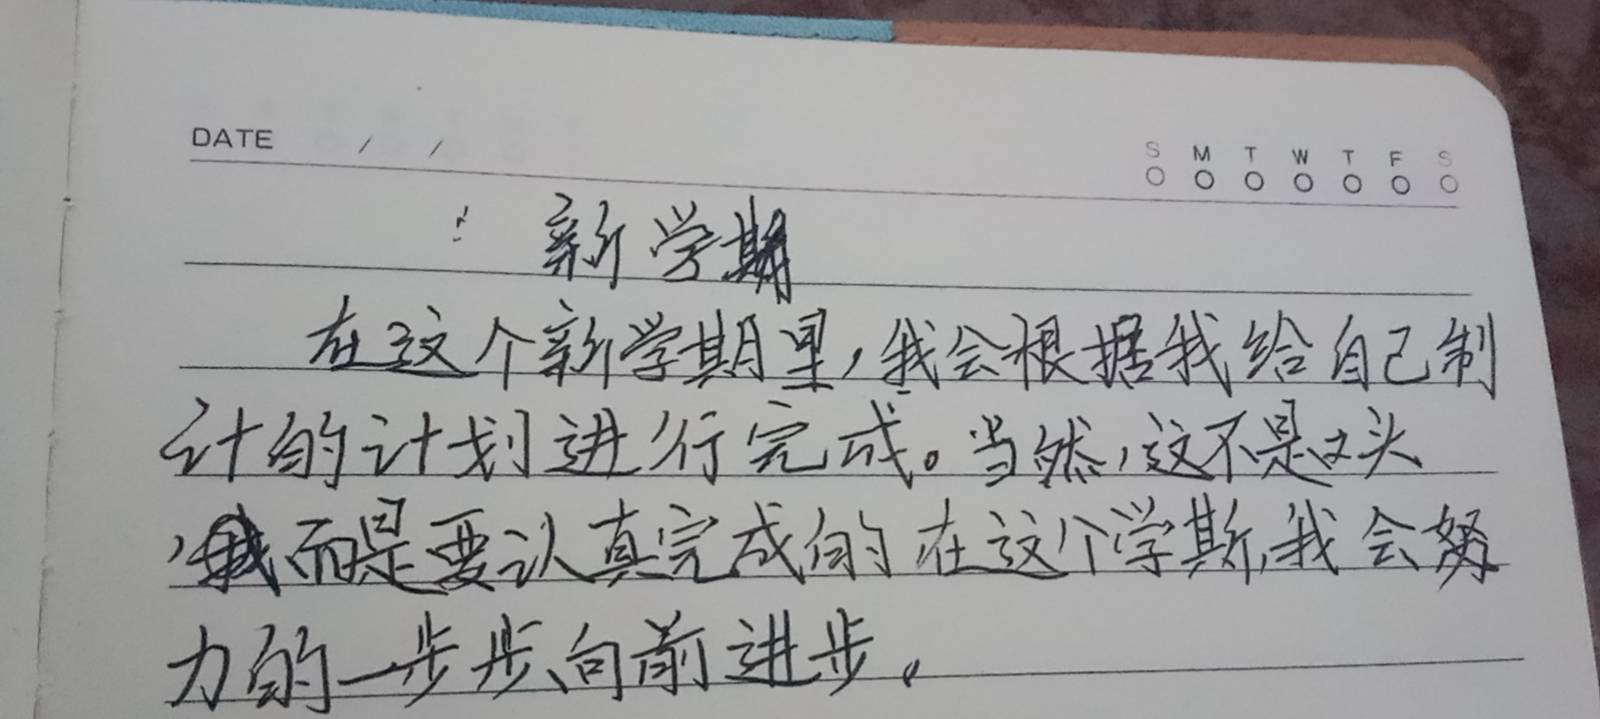 DATE / /
S M T W T F S
新学期
在这个新学期里,我会根据我给自己制
计的计划进行完成。当然,这不是口头
,而是要认真完成的在这个学斯,我会努
力的一步步向前进步。